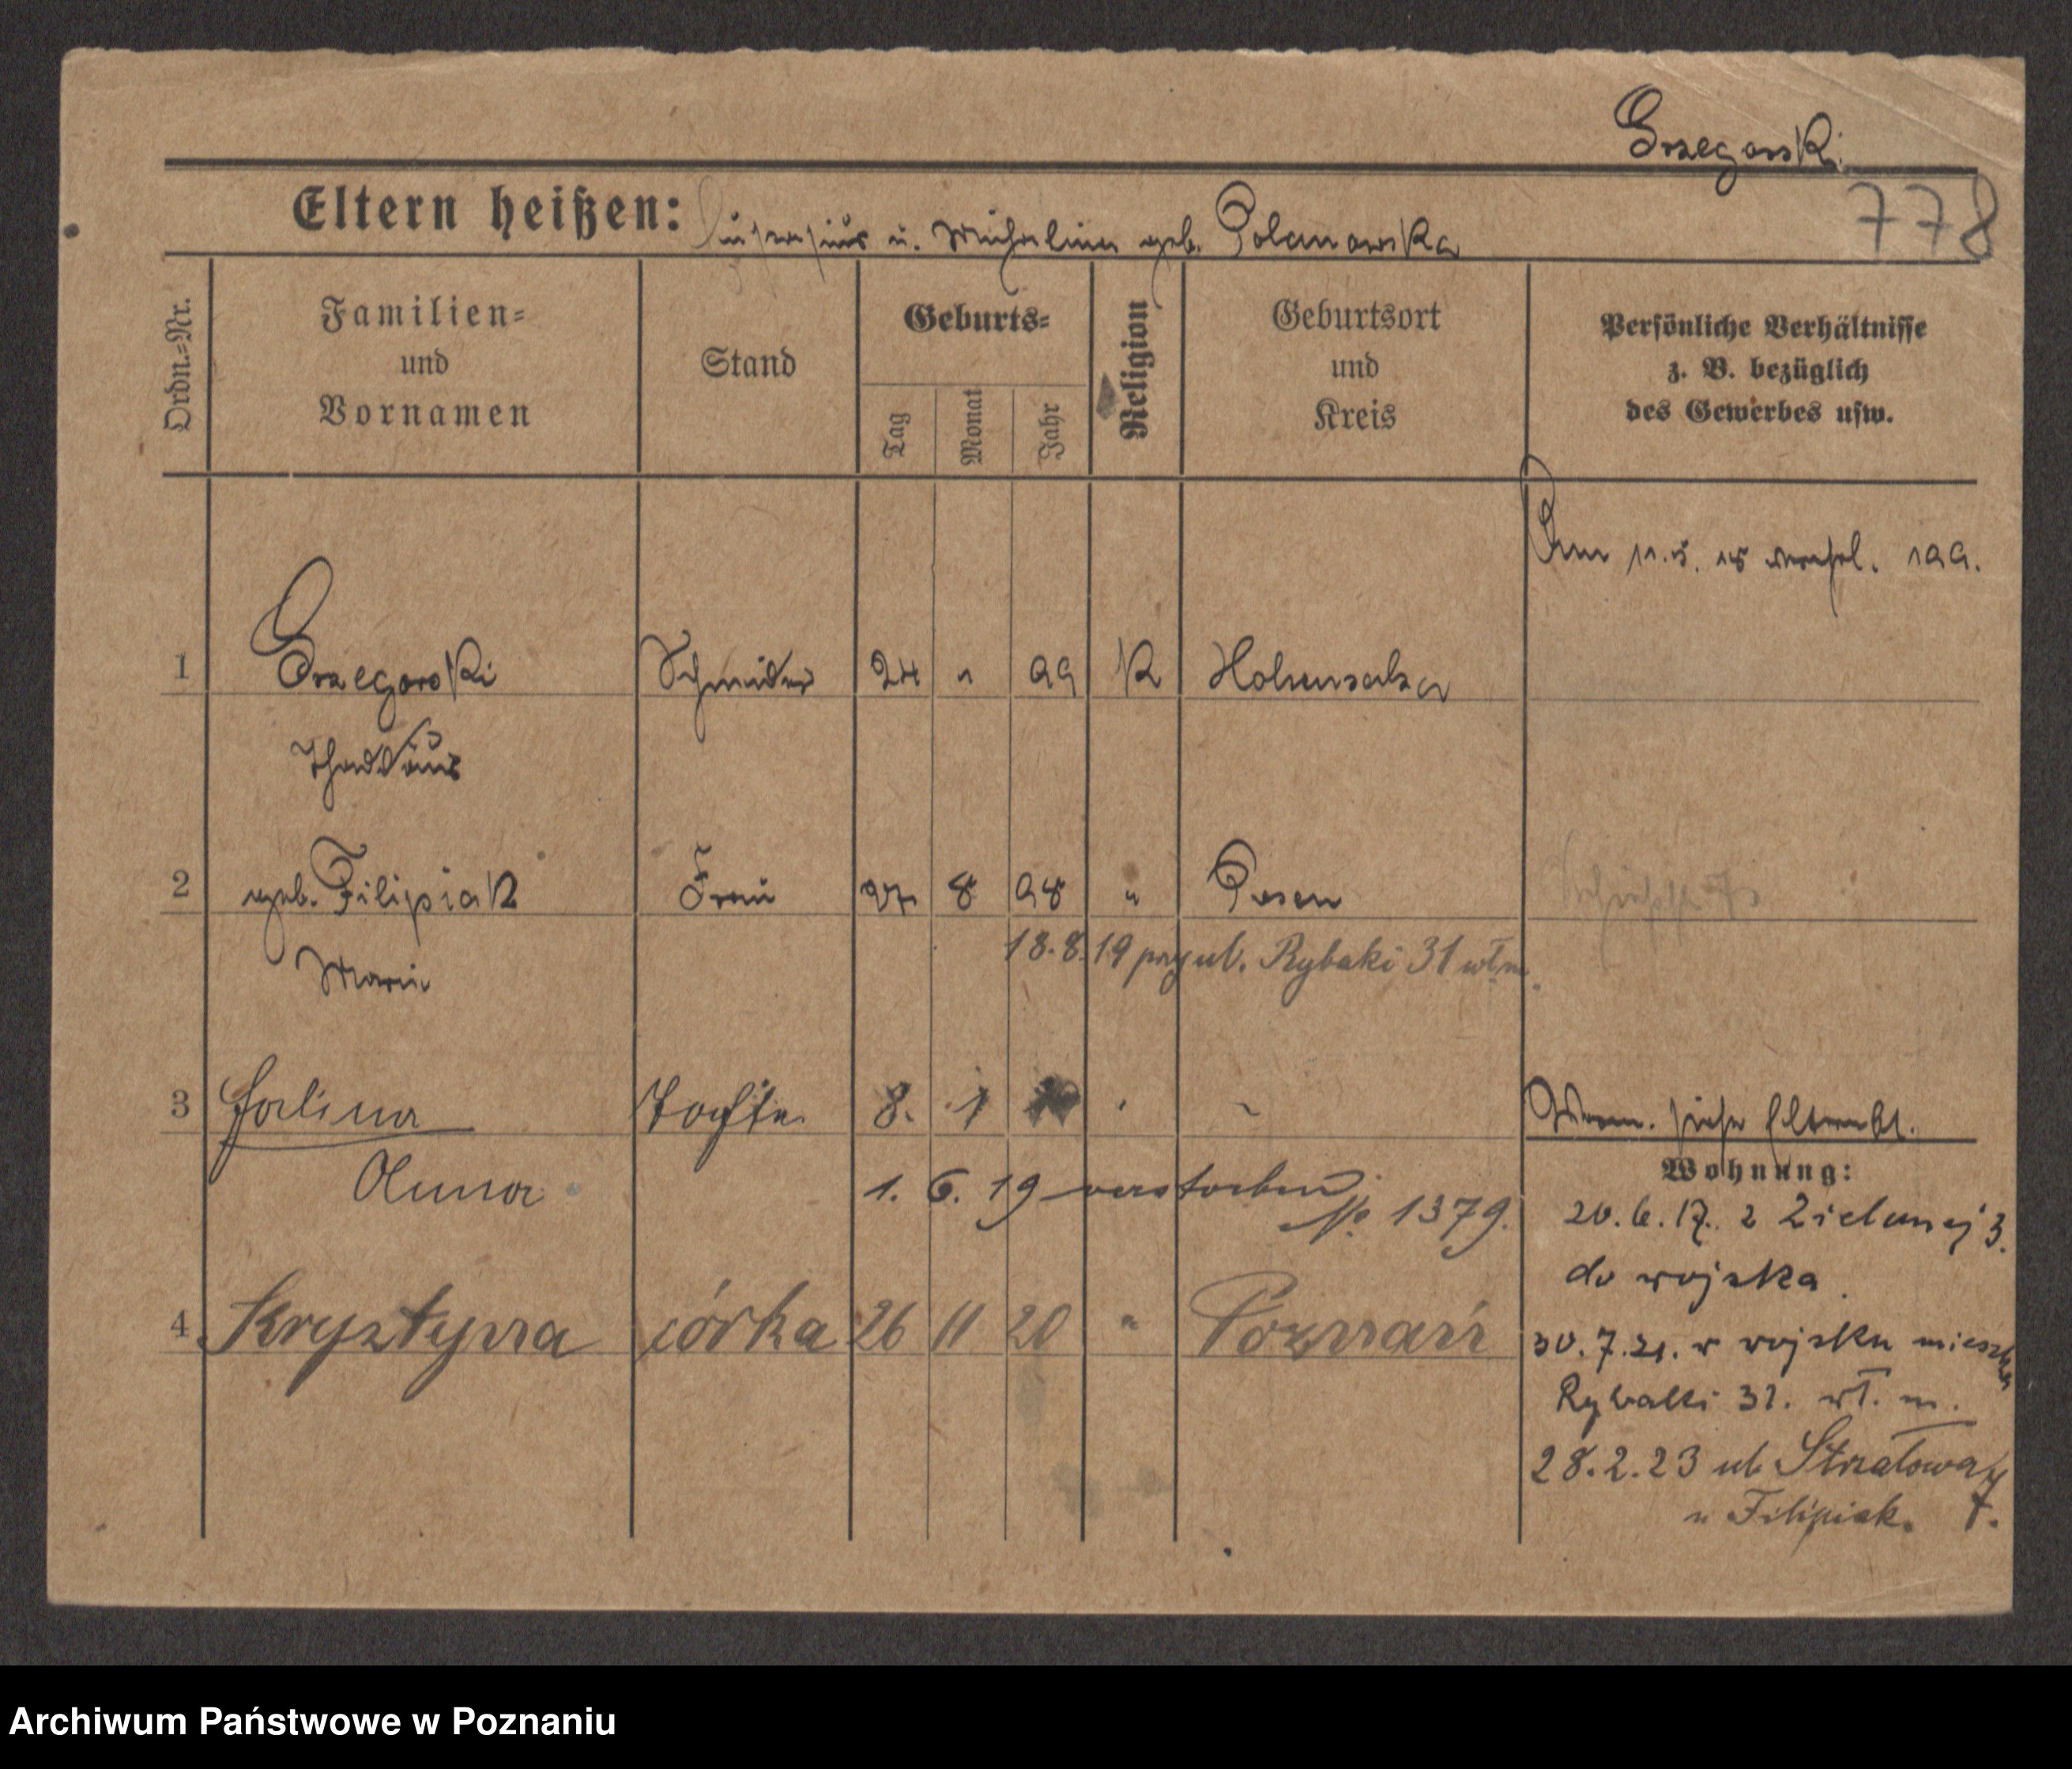 Grzegorski
778
Eltern heißen: u. Michalina geb. Polanowska
Ordn.-Nr.
Familien-
und
Vornamen
Stand
Geburts-
Tag
Monat
Jahr
Religion
Geburtsort
und
Kreis
Persönliche Verhältnisse
z. B. bezüglich
des Gewerbes usw.
Am 11.5. 18 verehel. 199.
1 Grzegorski Schneider 24 1 99 K Hohensalza
Thaddäus
2 geb. Filipiak Frau 27 8 98 " Posen
18.8.19 przy ul. Rybaki 31 wł m.
Marie
3 Halina Tochter 8. 1
Wohn. siehe Elternbl.
Anna 1. 6. 19 verstorben
No 1379.
Wohnung:
20.6.17. z Zielonej 3.
do wojska.
4 Krystyna córka 26 11 20 " Poznań
30.7.21. w wojsku mieszka
Rybaki 31. wł. m.
28.2.23 ul. Strzałowa 7
u Filipiak. 7.
Archiwum Państwowe w Poznaniu